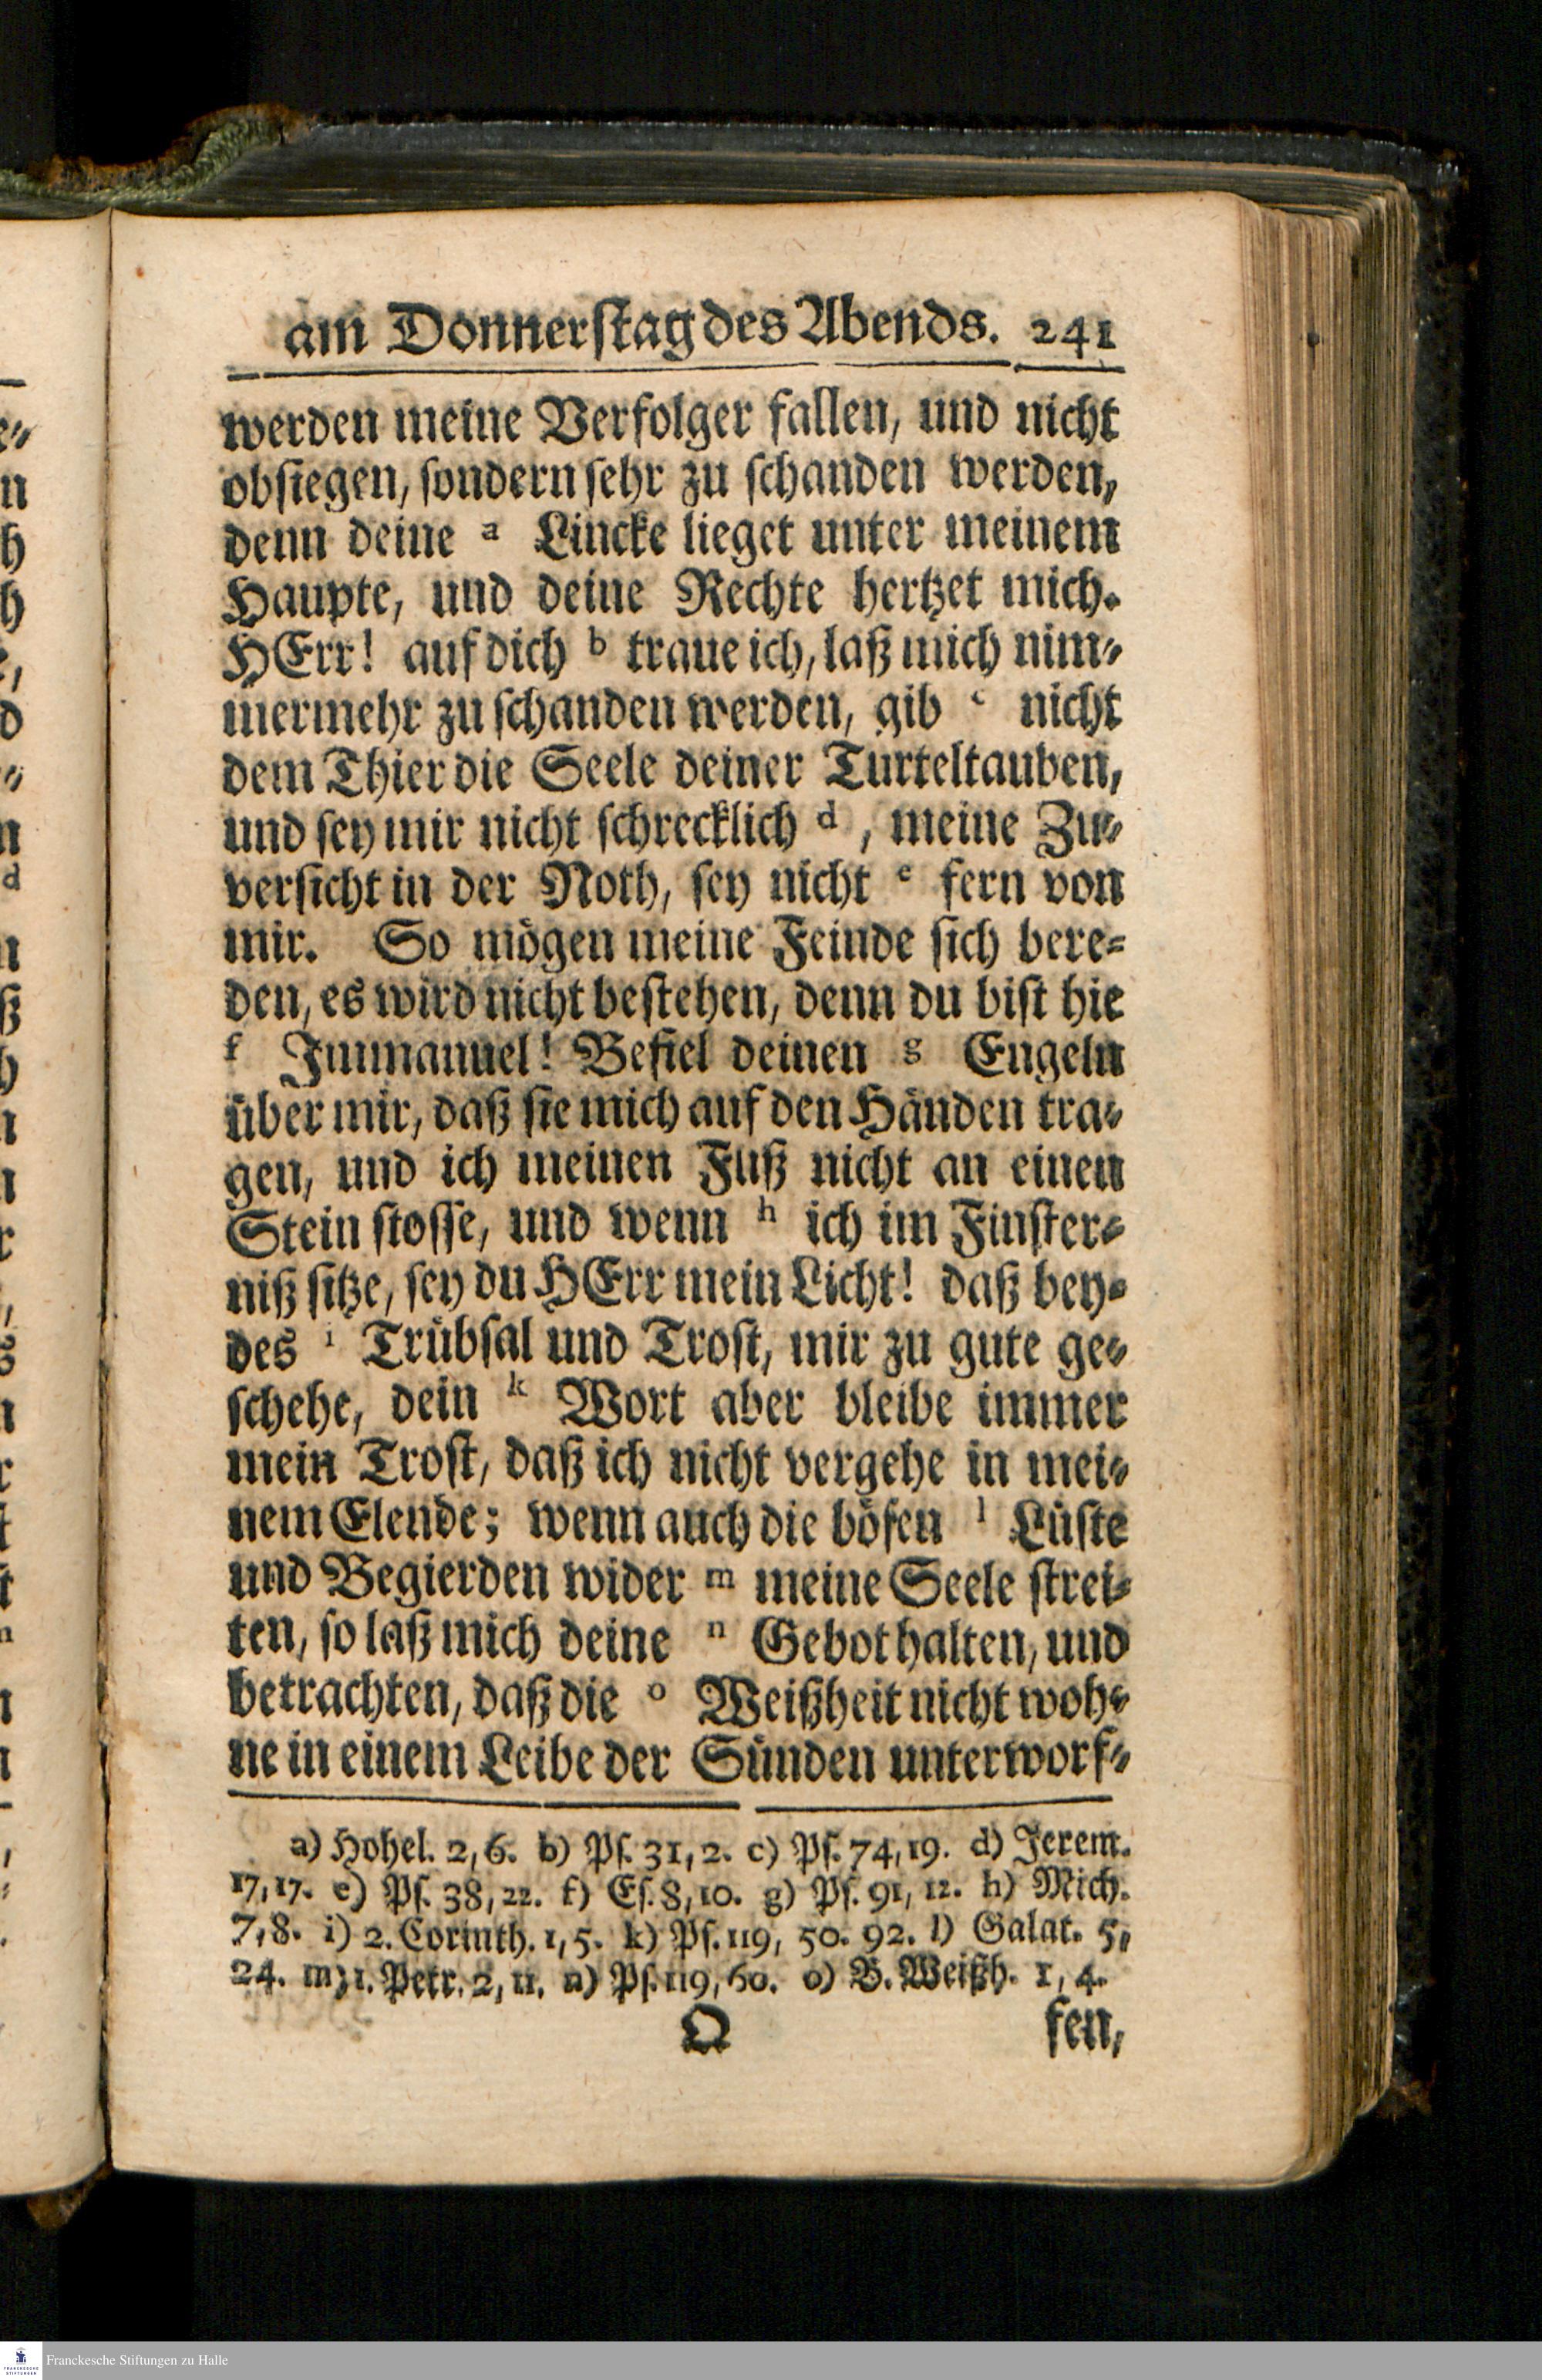 am Donnerstag des Abends. 241
werden meine Verfolger fallen, und nicht
obsiegen, sondern sehr zu schanden werden,
denn deine a Lincke lieget unter meinem
Haupte, und deine Rechte hertzet mich.
HErr! auf dich b traue ich, laß mich nim-
mermehr zu schanden werden, gib c nicht
dem Thier die Seele deiner Turteltauben,
und sey mir nicht schrecklich d , meine Zu-
versicht in der Noth, sey nicht e fern von
mir. So mögen meine Feinde sich bere-
den, es wird nicht bestehen, denn du bist hie
f Immanuel! Befiel deinen g Engeln
über mir, daß sie mich auf den Händen tra-
gen, und ich meinen Fuß nicht an einen
Stein stosse, und wenn h ich im Finster-
niß sitze, sey du HErr mein Licht! daß bey-
des i Trübsal und Trost, mir zu gute ge-
schehe, dein k Wort aber bleibe immer
mein Trost, daß ich nicht vergehe in mei-
nem Elende; wenn auch die bösen l Lüste
und Begierden wider m meine Seele strei-
ten, so laß mich deine n Gebot halten, und
betrachten, daß die o Weißheit nicht woh-
ne in einem Leibe der Sünden unterworf-
a) Hohel. 2,6. b) Ps. 31,2. c) Ps. 74,19. d) Jerem.
17,17. e) Ps. 38,22. f) Es. 8,10. g) Ps. 91, 12. h) Mich.
7,8. i) 2. Corinth. 1,5. k) Ps. 119, 50. 92. l) Galat. 5,
24. m) 1. Petr. 2, 11. n) Ps. 119, 60. o) B. Weißh. 1, 4.
Q fen,
Franckesche Stiftungen zu Halle